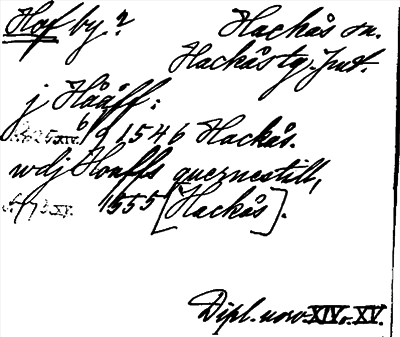 Hof by? Hackås sn.
Hackås tg. Jmt.
j Hååff:
6/9 1546 Hackås.
wdj Hoaffls quernestill,
1555 [Hackås].
Dipl. norv. XIV o. XV.